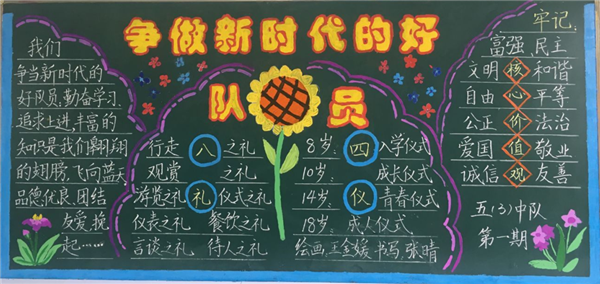 争做新时代的好
队员
我们
争当新时代的
好队员,勤奋学习
追求上进,丰富的
知识是我们翱翔
的翅膀,飞向蓝天
品德优良,团结
友爱,挽
起……
行走 八 之礼
观赏 之礼
游览之礼 礼 仪式之礼
仪表之礼 餐饮之礼
言谈之礼 待人之礼
8岁: 四 入学仪式
10岁: 成长仪式
14岁: 仪 青春仪式
18岁: 成人仪式
绘画,王金媛 书写,张晴
牢记
富强 民主
文明 核 和谐
自由 心 平等
公正 价 法治
爱国 值 敬业
诚信 观 友善
五(3)中队
第一期